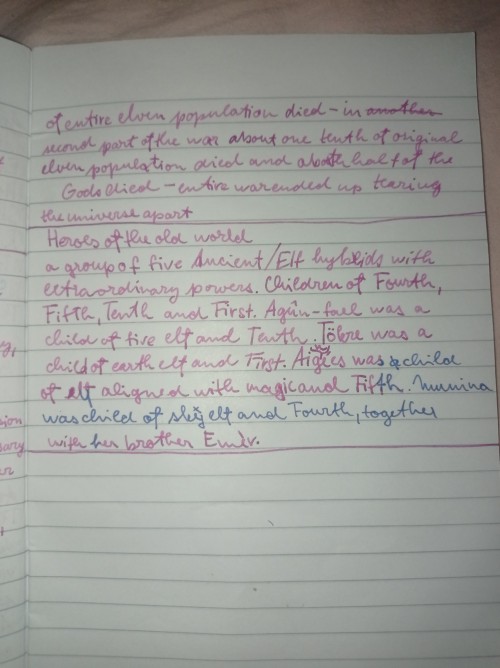 of entire elven population died - in another
second part of the war about one tenth of original
elven population died and about half of the
Gods died - entire war ended up tearing
the universe apart
Heroes of the old world
a group of five Ancient/Elf hybrids with
extraordinary powers. Children of Fourth,
Fifth, Tenth and First. Agûn-fael was a
child of five elf and Tenth. Töbre was a
child of earth elf and First. was a child
of elf aligned with magic and Fifth.
was child of elf and Fourth, together
with her brother